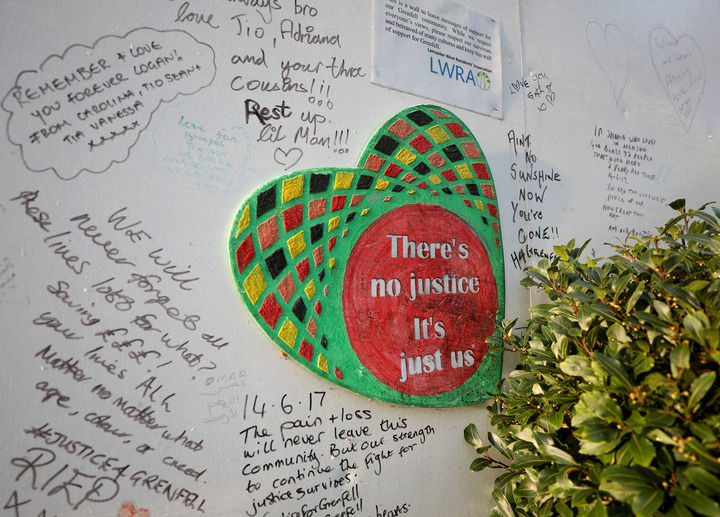 always bro
love
Jio, Adriana
and your three
cousins!!!
Rest up.
lil Man!!!
REMEMBER & LOVE
YOU FOREVER LOGAN!
FROM CAROLINA, TIO SEAN &
TIA VANESSA
xxxxx
This is a wall to leave messages of support for
our Grenfell community. While we respect
everyone's views, please respect our survivors
and bereaved of many cultures and keep this wall
of support for Grenfell.
Lancaster West Residents' Association
LWRA
LOVE YOU
AIN'T
NO
SUNSHINE
NOW
YOU'RE
GONE!!
There's
no justice
It's
just us
We will
never forget all
these lives lost for what?
Saving £££!
your lives. All
Matter no matter what
age, colour, or creed.
#JUSTICE4GRENFELL
RIP
14.6.17
The pain + loss
will never leave this
community. But our strength
to continue the fight for
justice survives.
Grenfell
hearts.